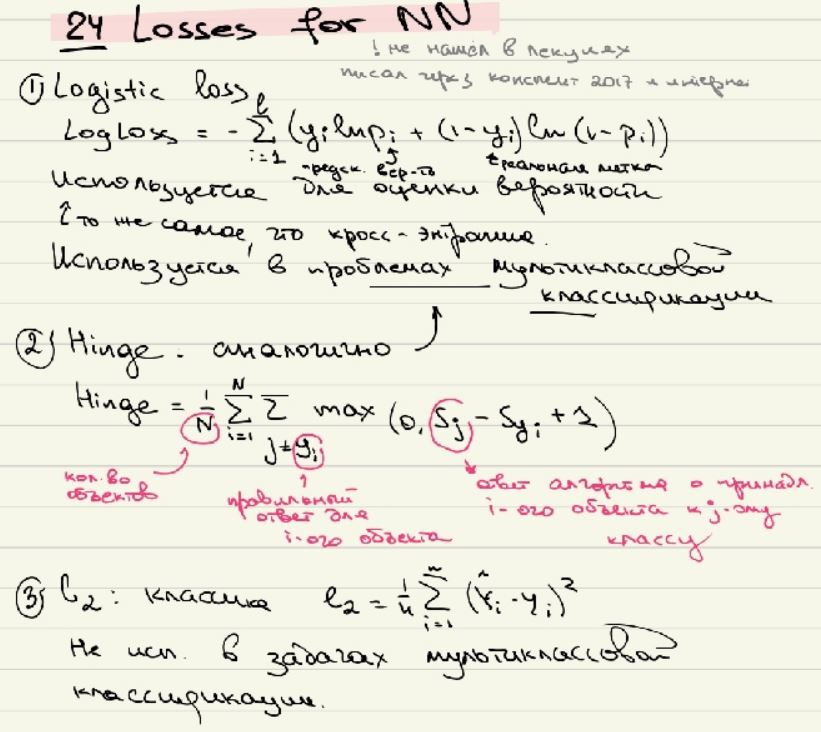 24 Losses for NN
! не нашёл в лекциях
писал через конспект 2017 и интернет
① Logistic loss
LogLoss = - ∑_{i=1}^{l} (y_i ln p_i + (1 - y_i) ln (1 - p_i))
предск. вер-ть реальная метка
Используется для оценки вероятности
то же самое, что кросс-энтропия.
Используется в проблемах мультиклассовой
классификации
② Hinge: аналогично
Hinge = 1/N ∑_{i=1}^{N} ∑_{j≠y_i} max (0, S_j - S_{y_i} + 1)
кол.во
объектов
правильный
ответ для
i-ого объекта
ответ алгоритма о принадл.
i-ого объекта к j-ому
классу
③ l_2: классика l_2 = 1/n ∑_{i=1}^{n} (Ŷ_i - y_i)^2
Не исп. в задачах мультиклассовой
классификации.